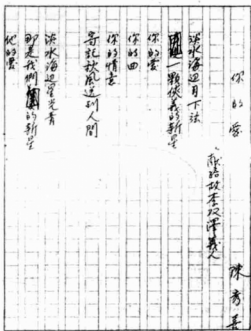 你的愛
陳秀喜
獻給故李双澤義人
淡水海邊月下
一顆俠義的新星
你的愛
你的曲
你的情意
寄託秋風送到人間
淡水海邊星光青
那是我們的新星
你的愛